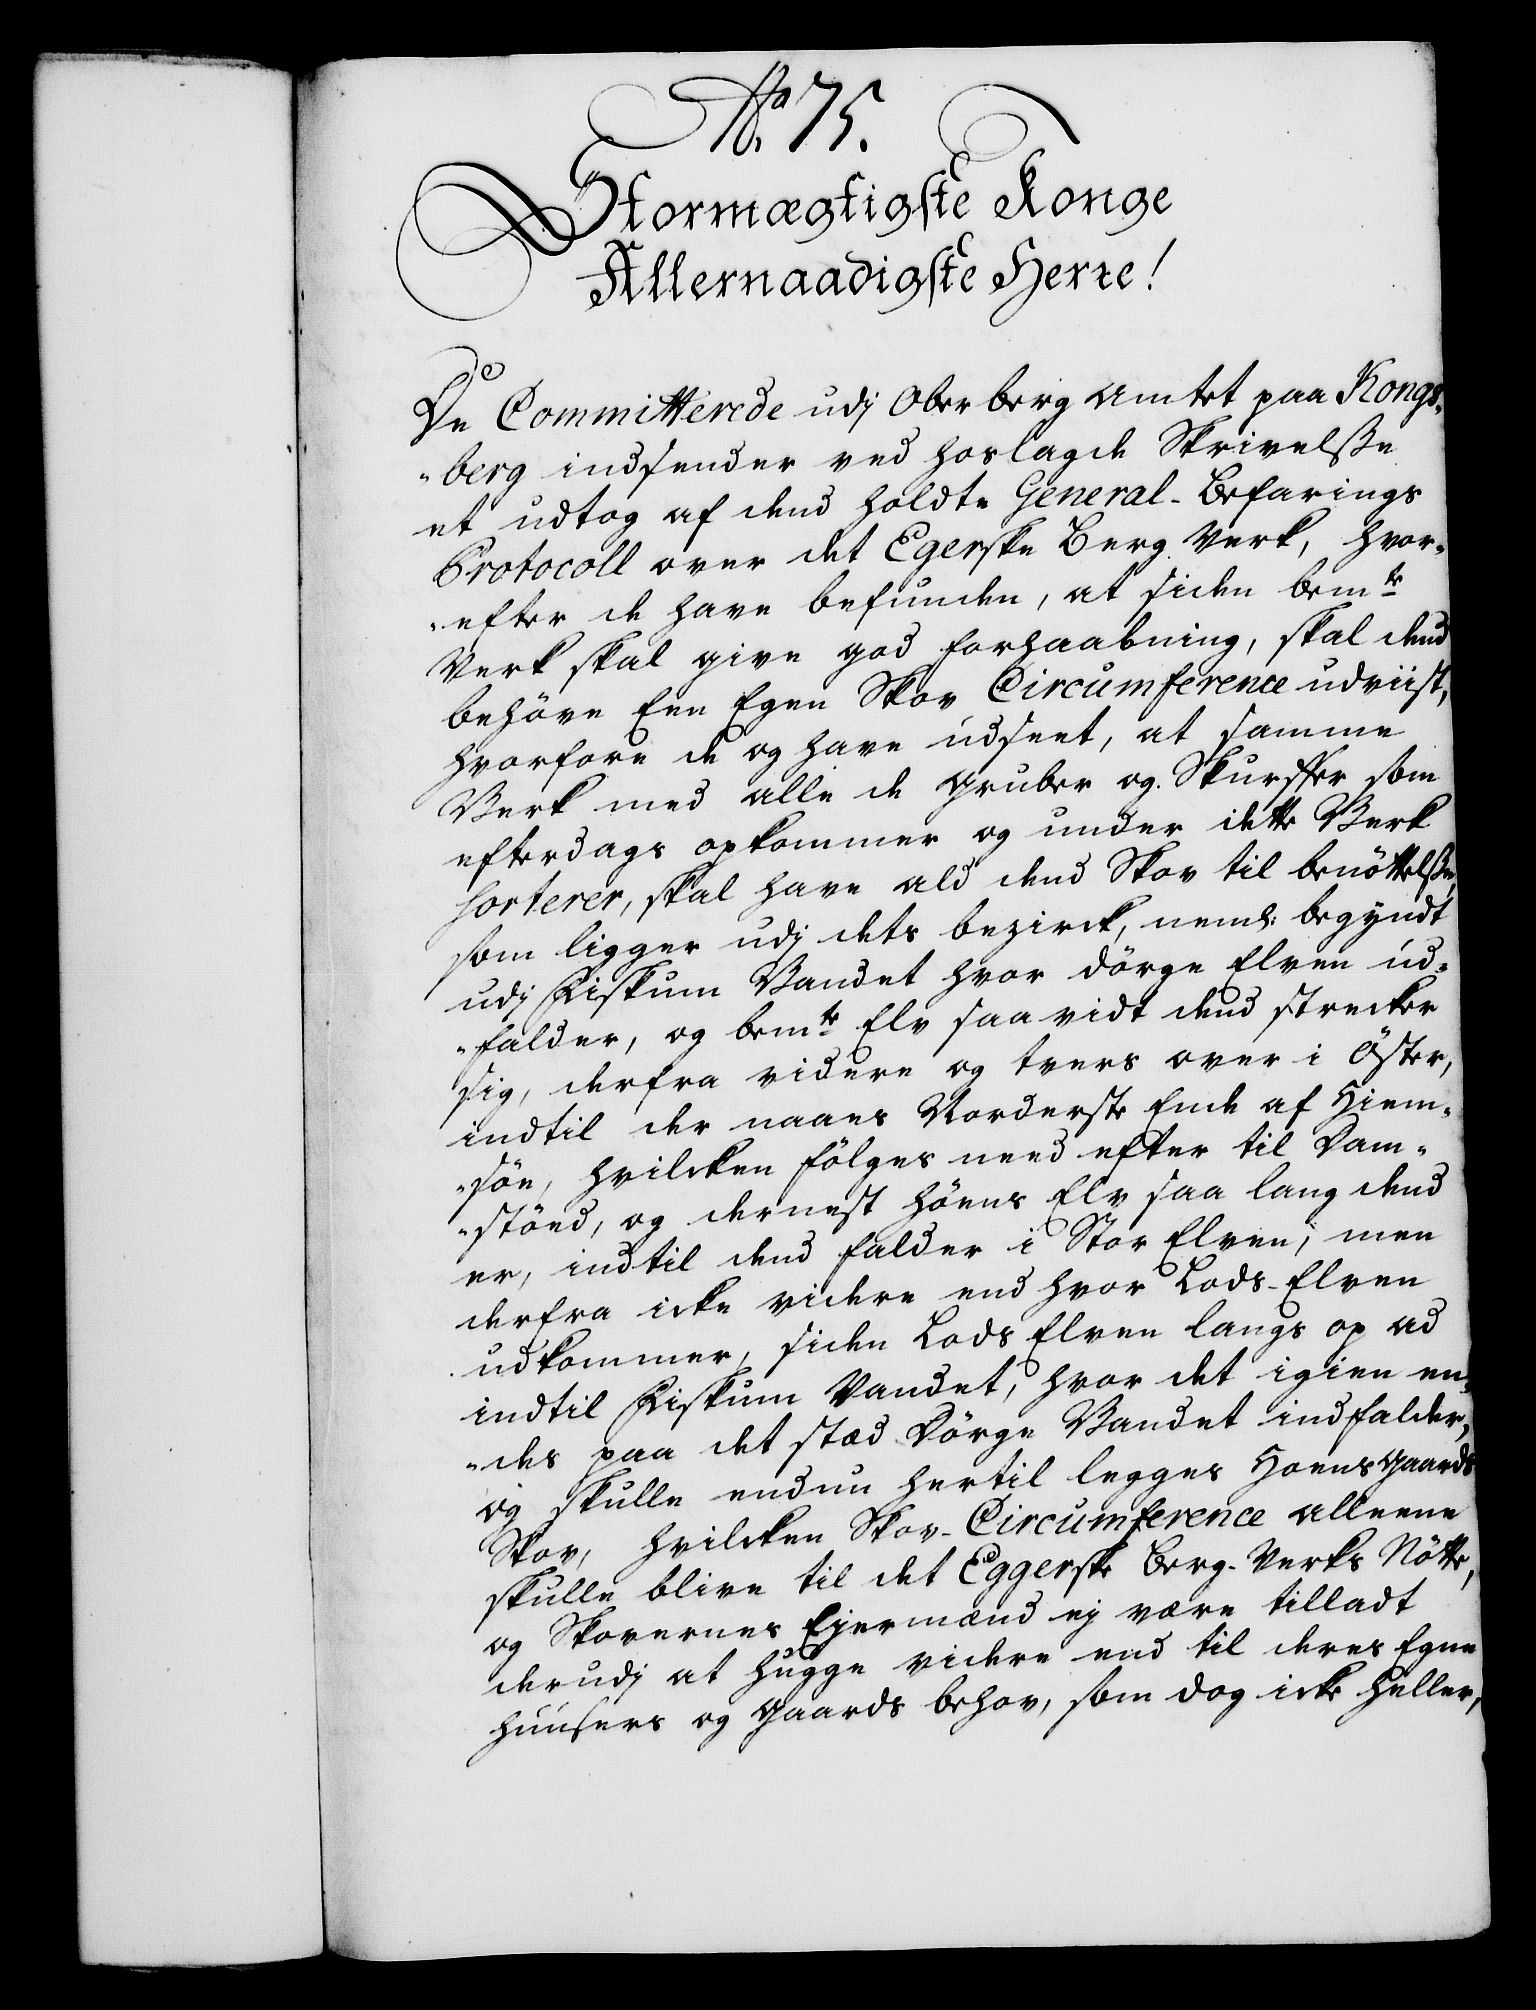 No. 75.
Stormægtigste Konge
Allernaadigste Herre!
De Committerede udj Ober berg Amtet paa Kongs-
-berg indsender ved hoslagde Skrivelsse
et udtog af dend holdte General-Befarings
Protocoll over det Egerske Berg Verk, hvor-
-efter de have befunden, at siden bemte
Verk skal give god forhaabning, skal dend
behöve Een Egen Skov Circumference udviist,
hvorfore de og have udseet, at samme
Verk med alle de Gruber og Skurffer som
efterdags opkommer og under dette Verk
sorterer, skal have ald dend Skov til benöttelsse,
som ligger udj dets bezirck, neml: begyndt
udj Fiskum Vandet hvor dörge Elven ud-
-falder, og bemte Elv saa vidt dend strecker
sig, derfra videre og tvers over i Öster,
indtil der naaes Norderste Ende af Hiem-
-söe, hvilcken fölges need efter til Dam-
-stöed, og dernest höens Elv saa lang dend
er, indtil dend falder i Stor Elven, men
derfra icke videre end hvor Lods-Elven
udkommer, siden Lods Elven langs op ad
indtil Fiskum Vandet, hvor det igien en-
-des paa det stæd Dörge Vandet indfalder,
og skulle endnu hertil legges Hoens Gaards
Skov, hvilcken Skov-Circumference alleene
skulle blive til det Eggerske Berg-Verks Nötte,
og Skovernes Ejermænd ej være tilladt
derudj at hugge videre end til deres Egne
huusers og Gaards behov, som dog icke heller,